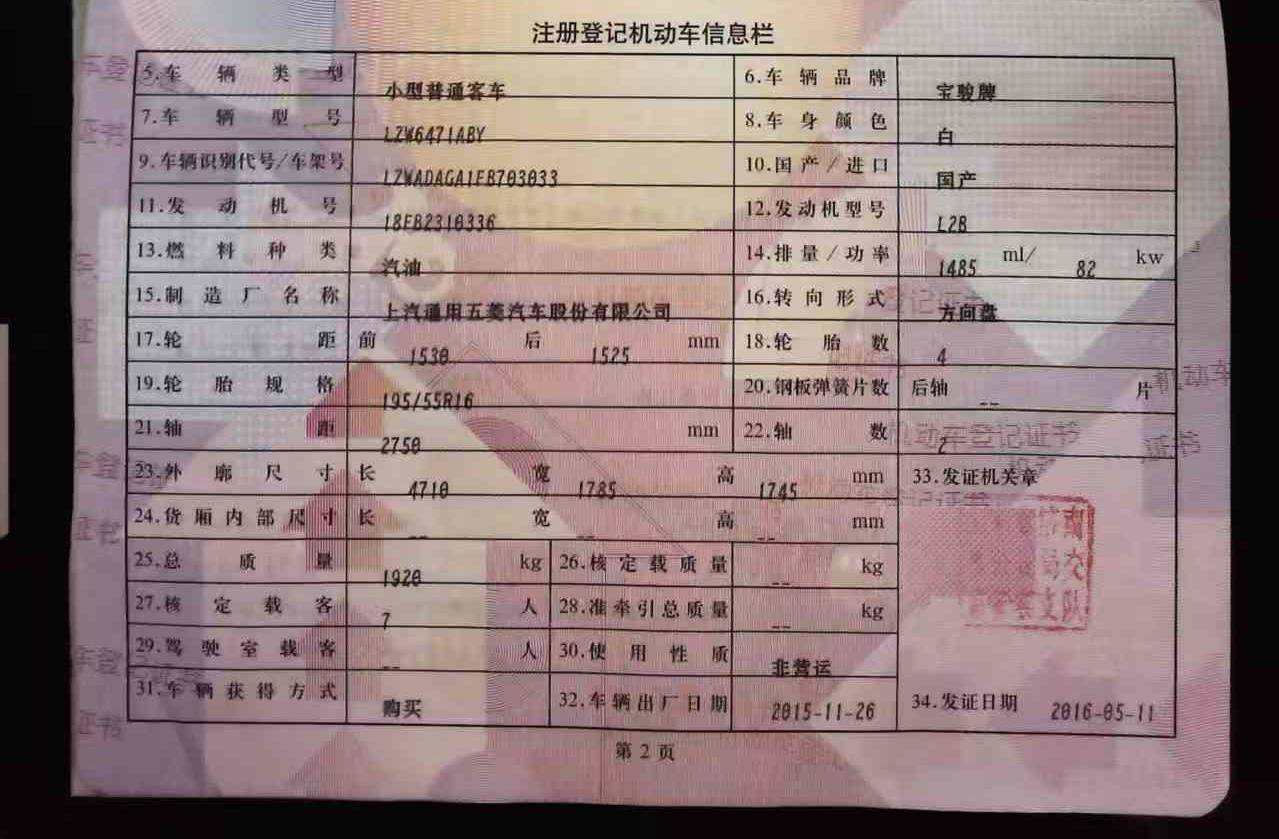 注册登记机动车信息栏
5.车辆类型 小型普通客车 6.车辆品牌 宝骏牌
7.车辆型号 LZW6471ABY 8.车身颜色 白
9.车辆识别代号/车架号 LZWADAGA1FB703033 10.国产/进口 国产
11.发动机号 18FB2310336 12.发动机型号 L2B
13.燃料种类 汽油 14.排量/功率 1485 ml/ 82 kw
15.制造厂名称 上汽通用五菱汽车股份有限公司 16.转向形式 方向盘
17.轮距 前 1530 后 1525 mm 18.轮胎数 4
19.轮胎规格 195/55R16 20.钢板弹簧片数 后轴 -- 片
21.轴距 2750 mm 22.轴数 2
23.外廓尺寸 长 4710 宽 1785 高 1745 mm 33.发证机关章
24.货厢内部尺寸 长 -- 宽 -- 高 -- mm
25.总质量 1920 kg 26.核定载质量 -- kg
27.核定载客 7 人 28.准牵引总质量 -- kg
29.驾驶室载客 -- 人 30.使用性质 非营运
31.车辆获得方式 购买 32.车辆出厂日期 2015-11-26 34.发证日期 2016-05-11
第 2 页